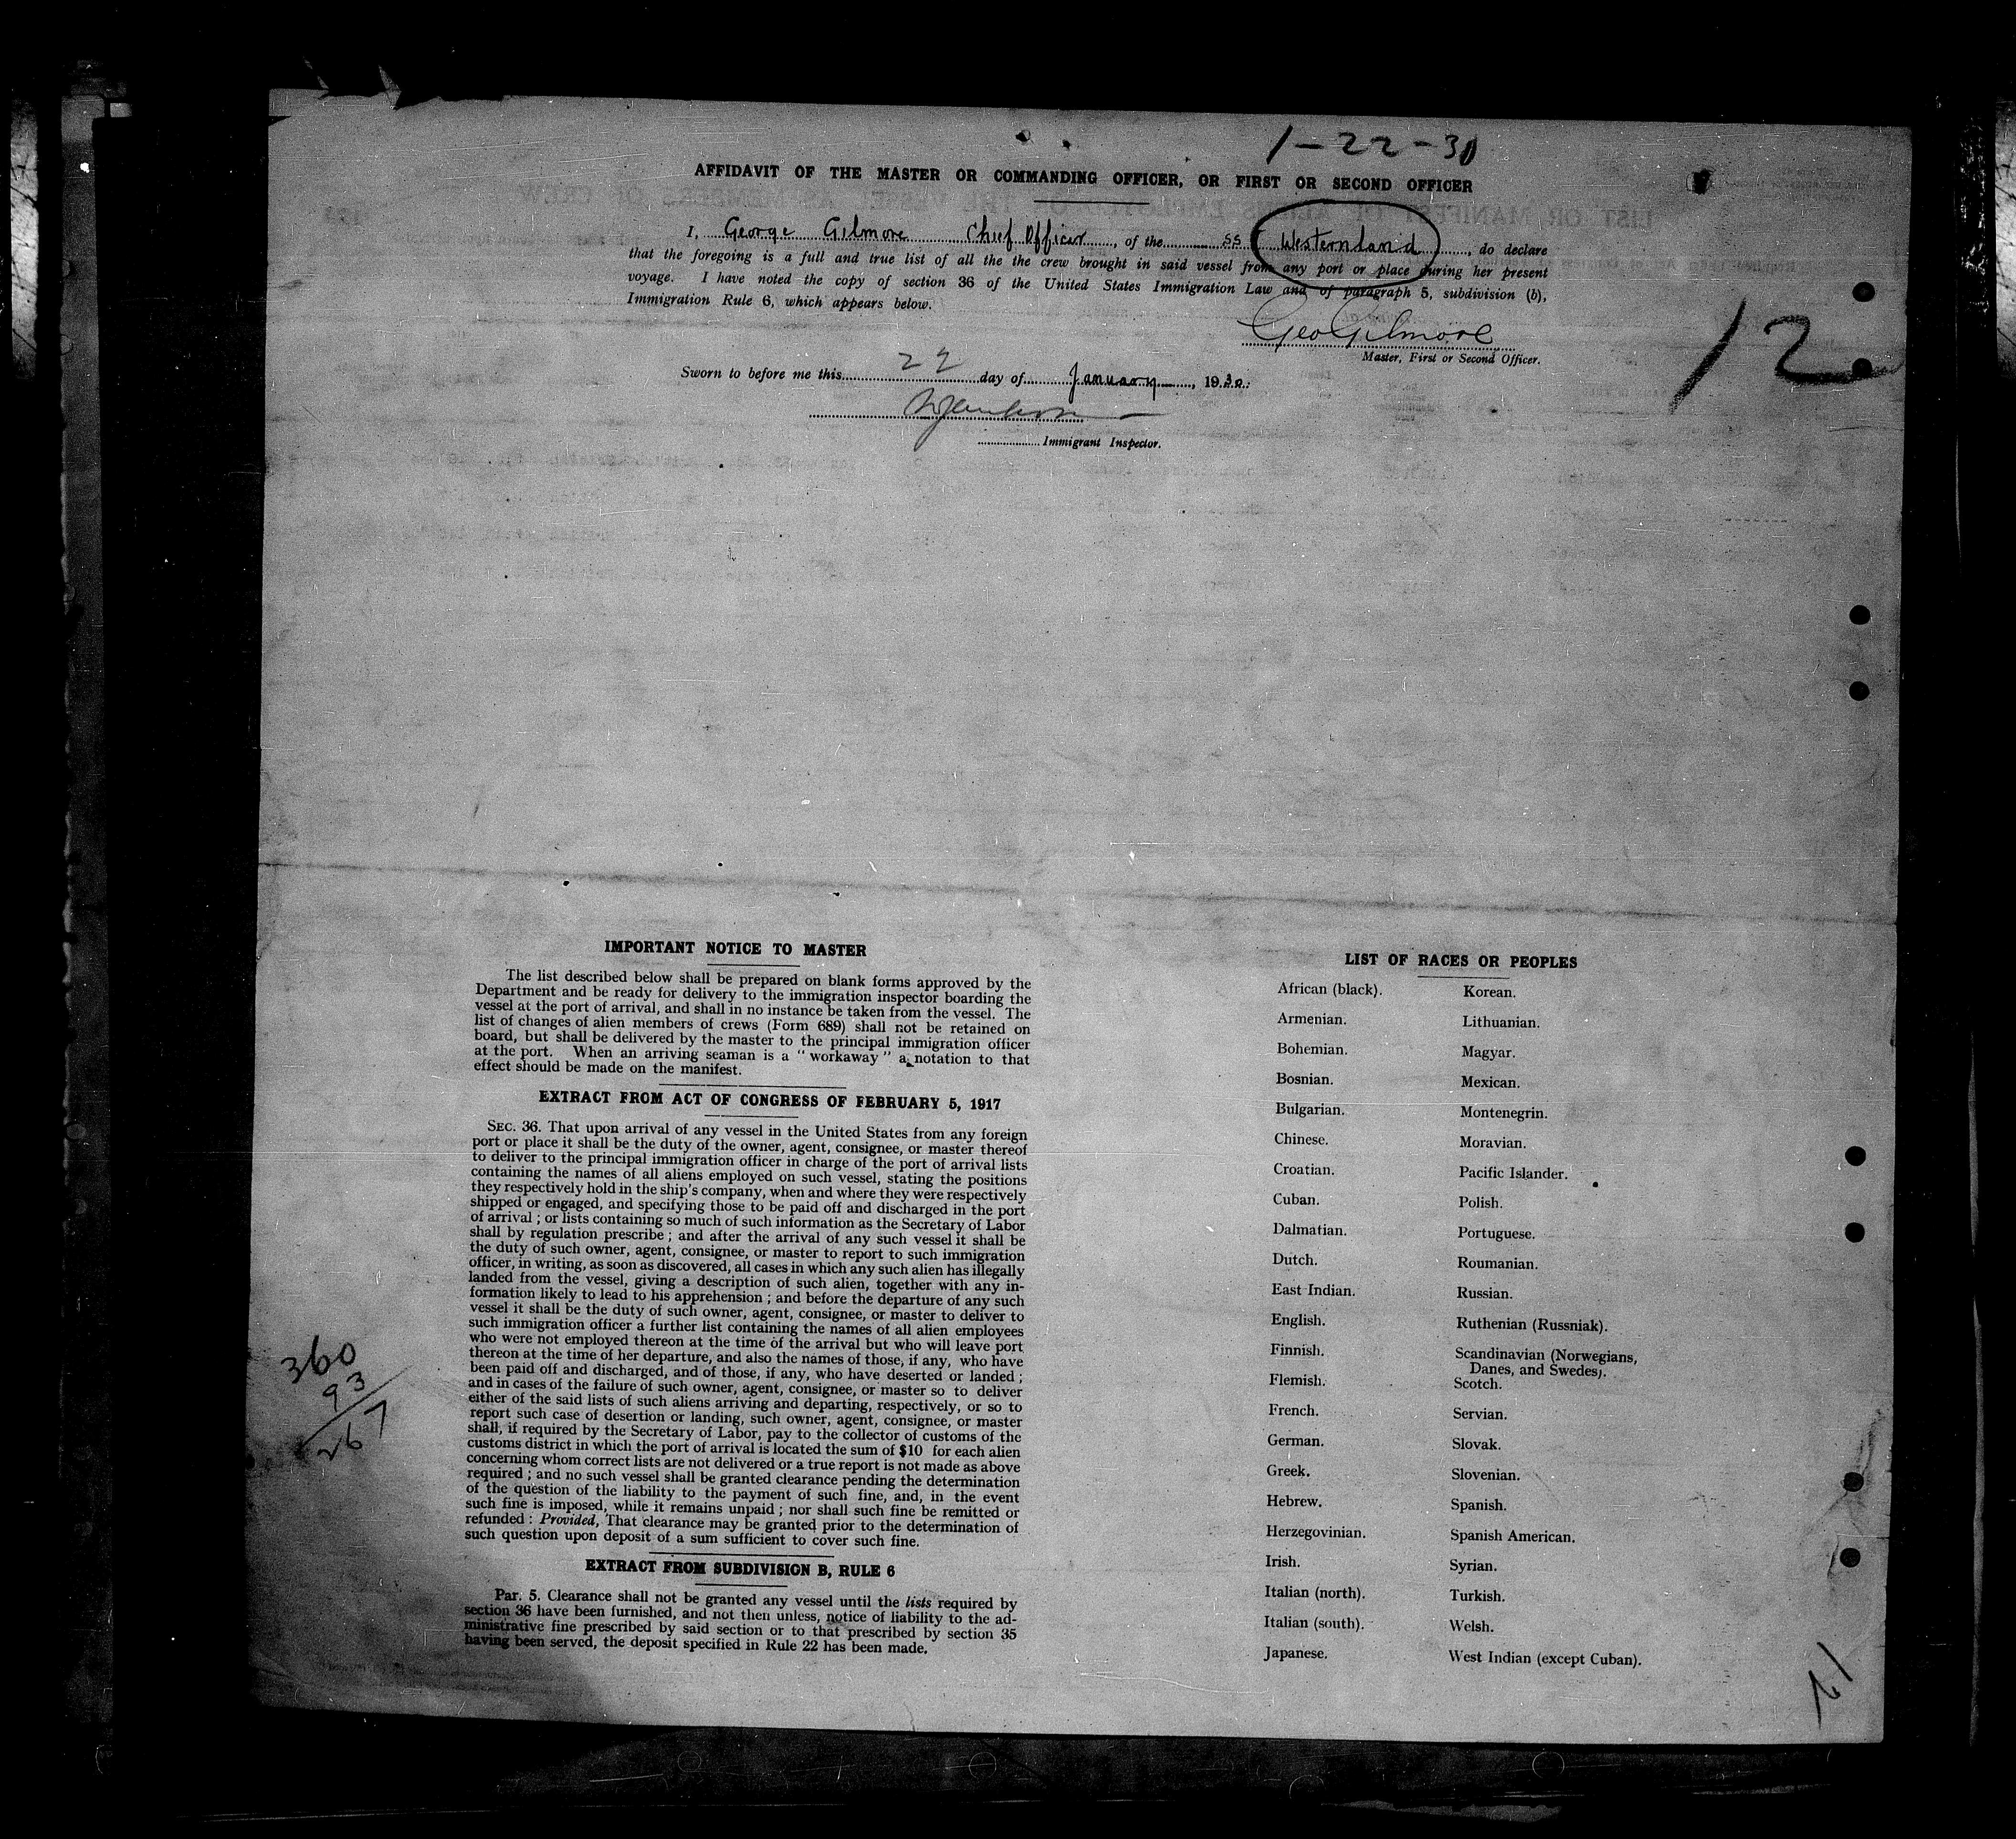 1-22-30
AFFIDAVIT OF THE MASTER OR COMMANDING OFFICER, OR FIRST OR SECOND OFFICER
I, George Gilmore Chief Officer, of the SS Westernland, do declare
that the foregoing is a full and true list of all the the crew brought in said vessel from any port or place during her present
voyage. I have noted the copy of section 36 of the United States Immigration Law and of paragraph 5, subdivision (b),
Immigration Rule 6, which appears below.
Geo Gilmore
Master, First or Second Officer.
12
Sworn to before me this 22 day of January, 1930.
Immigrant Inspector.
IMPORTANT NOTICE TO MASTER
The list described below shall be prepared on blank forms approved by the
Department and be ready for delivery to the immigration inspector boarding the
vessel at the port of arrival, and shall in no instance be taken from the vessel. The
list of changes of alien members of crews (Form 689) shall not be retained on
board, but shall be delivered by the master to the principal immigration officer
at the port. When an arriving seaman is a "workaway" a notation to that
effect should be made on the manifest.
EXTRACT FROM ACT OF CONGRESS OF FEBRUARY 5, 1917
SEC. 36. That upon arrival of any vessel in the United States from any foreign
port or place it shall be the duty of the owner, agent, consignee, or master thereof
to deliver to the principal immigration officer in charge of the port of arrival lists
containing the names of all aliens employed on such vessel, stating the positions
they respectively hold in the ship's company, when and where they were respectively
shipped or engaged, and specifying those to be paid off and discharged in the port
of arrival; or lists containing so much of such information as the Secretary of Labor
shall by regulation prescribe; and after the arrival of any such vessel it shall be
the duty of such owner, agent, consignee, or master to report to such immigration
officer, in writing, as soon as discovered, all cases in which any such alien has illegally
landed from the vessel, giving a description of such alien, together with any in-
formation likely to lead to his apprehension; and before the departure of any such
vessel it shall be the duty of such owner, agent, consignee, or master to deliver to
such immigration officer a further list containing the names of all alien employees
who were not employed thereon at the time of the arrival but who will leave port
thereon at the time of her departure, and also the names of those, if any, who have
been paid off and discharged, and of those, if any, who have deserted or landed;
and in cases of the failure of such owner, agent, consignee, or master so to deliver
either of the said lists of such aliens arriving and departing, respectively, or so to
report such case of desertion or landing, such owner, agent, consignee, or master
shall, if required by the Secretary of Labor, pay to the collector of customs of the
customs district in which the port of arrival is located the sum of $10 for each alien
concerning whom correct lists are not delivered or a true report is not made as above
required; and no such vessel shall be granted clearance pending the determination
of the question of the liability to the payment of such fine, and, in the event
such fine is imposed, while it remains unpaid; nor shall such fine be remitted or
refunded: Provided, That clearance may be granted prior to the determination of
such question upon deposit of a sum sufficient to cover such fine.
EXTRACT FROM SUBDIVISION B, RULE 6
Par. 5. Clearance shall not be granted any vessel until the lists required by
section 36 have been furnished, and not then unless, notice of liability to the ad-
ministrative fine prescribed by said section or to that prescribed by section 35
having been served, the deposit specified in Rule 22 has been made.
360
93
267
LIST OF RACES OR PEOPLES
African (black).
Armenian.
Bohemian.
Bosnian.
Bulgarian.
Chinese.
Croatian.
Cuban.
Dalmatian.
Dutch.
East Indian.
English.
Finnish.
Flemish.
French.
German.
Greek.
Hebrew.
Herzegovinian.
Irish.
Italian (north).
Italian (south).
Japanese.
Korean.
Lithuanian.
Magyar.
Mexican.
Montenegrin.
Moravian.
Pacific Islander.
Polish.
Portuguese.
Roumanian.
Russian.
Ruthenian (Russniak).
Scandinavian (Norwegians,
Danes, and Swedes).
Scotch.
Servian.
Slovak.
Slovenian.
Spanish.
Spanish American.
Syrian.
Turkish.
Welsh.
West Indian (except Cuban).